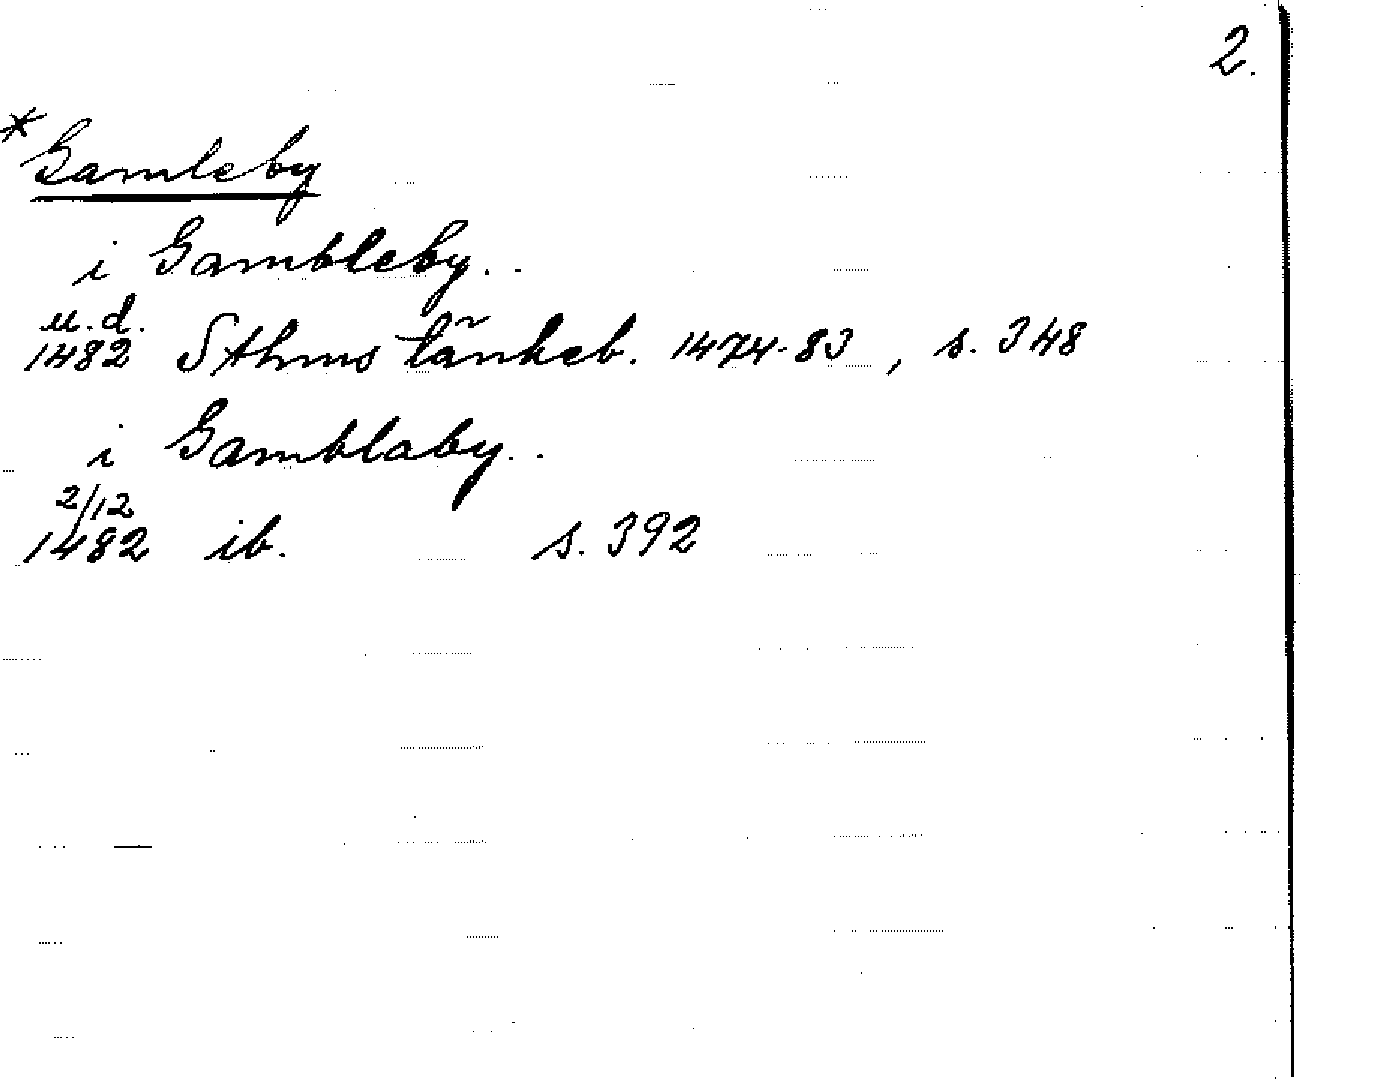 2.
* Gamleby
i Gambleby. .
u.d.
1482 Sthms tänkeb. 1474-83, s. 348
i Gamblaby. .
2/12
1482 ib. s. 392